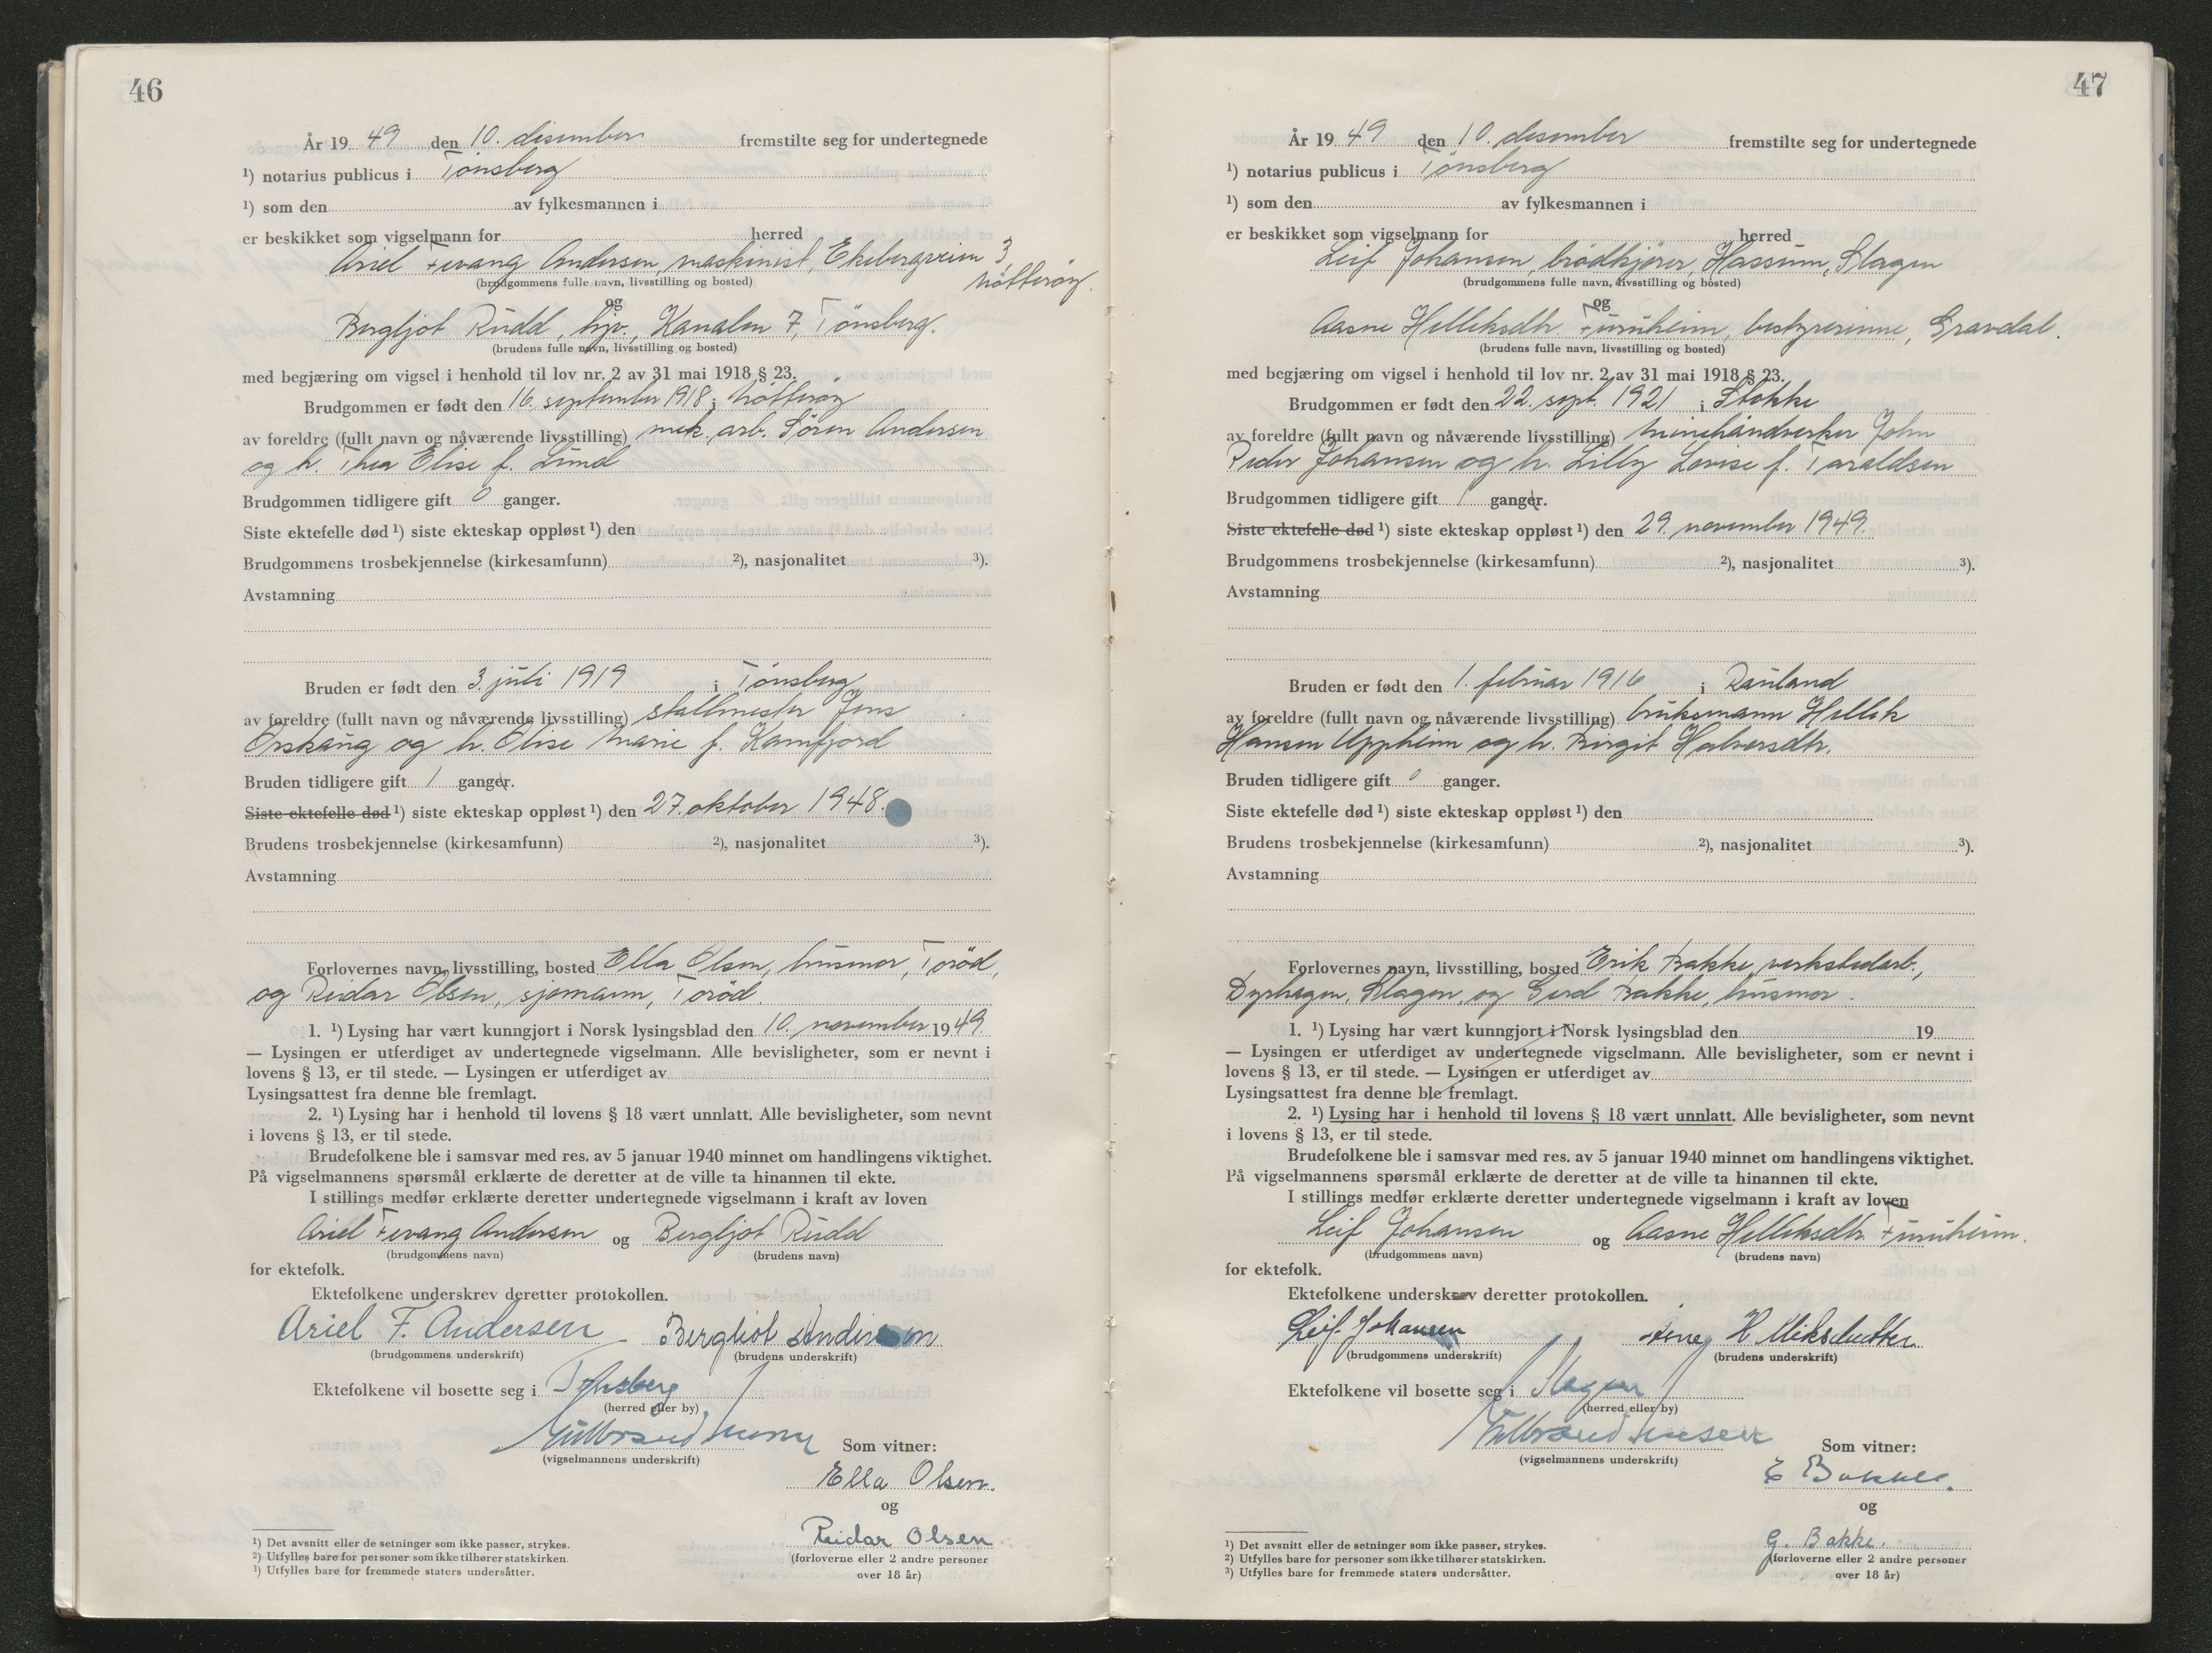 46
År 19 49 den 10. desember fremstilte seg for undertegnede
¹) notarius publicus i Tönsberg
¹) som den av fylkesmannen i
er beskikket som vigselmann for herred
Ariel Fevang Andersen, maskinist, Ekebergveien 3,
Nötteröy.
(brudgommens fulle navn, livsstilling og bosted)
og
Bergljot Rudd, hjv., Kanalen 7, Tönsberg.
(brudens fulle navn, livsstilling og bosted)
med begjæring om vigsel i henhold til lov nr. 2 av 31 mai 1918 § 23.
Brudgommen er født den 16. september 1918 i Nötteröy
av foreldre (fullt navn og nåværende livsstilling) mek. arb. Sören Andersen
og h. Thea Elise f. Lund
Brudgommen tidligere gift 0 ganger.
Siste ektefelle død ¹) siste ekteskap oppløst ¹) den
Brudgommens trosbekjennelse (kirkesamfunn) ²), nasjonalitet ³).
Avstamning
Bruden er født den 3. juli 1919 i Tönsberg
av foreldre (fullt navn og nåværende livsstilling) stallmester Jens
Orskaug og h. Elise Marie f. Kamfjord
Bruden tidligere gift 1 ganger.
Siste ektefelle død ¹) siste ekteskap oppløst ¹) den 27. oktober 1948.
Brudens trosbekjennelse (kirkesamfunn) ²), nasjonalitet ³).
Avstamning
Forlovernes navn, livsstilling, bosted Ella Olsen, husmor, Toröd,
og Reidar Olsen, sjömann, Toröd.
1. ¹) Lysing har vært kunngjort i Norsk lysingsblad den 10. november 1949.
— Lysingen er utferdiget av undertegnede vigselmann. Alle bevisligheter, som er nevnt i
lovens § 13, er til stede. — Lysingen er utferdiget av
Lysingsattest fra denne ble fremlagt.
2. ¹) Lysing har i henhold til lovens § 18 vært unnlatt. Alle bevisligheter, som nevnt
i lovens § 13, er til stede.
Brudefolkene ble i samsvar med res. av 5 januar 1940 minnet om handlingens viktighet.
På vigselmannens spørsmål erklærte de deretter at de ville ta hinannen til ekte.
I stillings medfør erklærte deretter undertegnede vigselmann i kraft av loven
Ariel Fevang Andersen og Bergljot Rudd
(brudgommens navn) (brudens navn)
for ektefolk.
Ektefolkene underskrev deretter protokollen.
Ariel F. Andersen Bergliot Andersen
(brudgommens underskrift) (brudens underskrift)
Ektefolkene vil bosette seg i Tønsberg
(herred eller by)
(vigselmannens underskrift)
Som vitner:
Ella Olsen.
og
Reidar Olsen
(forloverne eller 2 andre personer
over 18 år)
¹) Det avsnitt eller de setninger som ikke passer, strykes.
²) Utfylles bare for personer som ikke tilhører statskirken.
³) Utfylles bare for fremmede staters undersåtter.
47
År 19 49 den 10. desember fremstilte seg for undertegnede
¹) notarius publicus i Tönsberg
¹) som den av fylkesmannen i
er beskikket som vigselmann for herred
Leif Johansen, brödkjörer, Hassum, Slagen
(brudgommens fulle navn, livsstilling og bosted)
og
Aasne Helleksdtr. Furuheim, bestyrerinne, Gravdal.
(brudens fulle navn, livsstilling og bosted)
med begjæring om vigsel i henhold til lov nr. 2 av 31 mai 1918 § 23.
Brudgommen er født den 22. sept. 1921 i Stokke
av foreldre (fullt navn og nåværende livsstilling) minehåndverker John
Peder Johansen og h. Lilly Lovise f. Taraldsen
Brudgommen tidligere gift 1 ganger.
Siste ektefelle død ¹) siste ekteskap oppløst ¹) den 29. november 1949.
Brudgommens trosbekjennelse (kirkesamfunn) ²), nasjonalitet ³).
Avstamning
Bruden er født den 1. februar 1916 i Rauland
av foreldre (fullt navn og nåværende livsstilling) bruksmann Hellek
Hansen Uppheim og h. Birgit Halvorsdtr.
Bruden tidligere gift 0 ganger.
Siste ektefelle død ¹) siste ekteskap oppløst ¹) den
Brudens trosbekjennelse (kirkesamfunn) ²), nasjonalitet ³).
Avstamning
Forlovernes navn, livsstilling, bosted Erik Bakke, verkstedarb.,
Dyrhagen, Slagen, og Gerd Bakke, husmor.
1. ¹) Lysing har vært kunngjort i Norsk lysingsblad den 19
— Lysingen er utferdiget av undertegnede vigselmann. Alle bevisligheter, som er nevnt i
lovens § 13, er til stede. — Lysingen er utferdiget av
Lysingsattest fra denne ble fremlagt.
2. ¹) Lysing har i henhold til lovens § 18 vært unnlatt. Alle bevisligheter, som nevnt
i lovens § 13, er til stede.
Brudefolkene ble i samsvar med res. av 5 januar 1940 minnet om handlingens viktighet.
På vigselmannens spørsmål erklærte de deretter at de ville ta hinannen til ekte.
I stillings medfør erklærte deretter undertegnede vigselmann i kraft av loven
Leif Johansen og Aasne Helleksdtr. Furuheim.
(brudgommens navn) (brudens navn)
for ektefolk.
Ektefolkene underskrev deretter protokollen.
Leif Johansen
(brudgommens underskrift) (brudens underskrift)
Ektefolkene vil bosette seg i Slagen
(herred eller by)
(vigselmannens underskrift)
Som vitner:
E Bakke.
og
G. Bakke.
(forloverne eller 2 andre personer
over 18 år)
¹) Det avsnitt eller de setninger som ikke passer, strykes.
²) Utfylles bare for personer som ikke tilhører statskirken.
³) Utfylles bare for fremmede staters undersåtter.